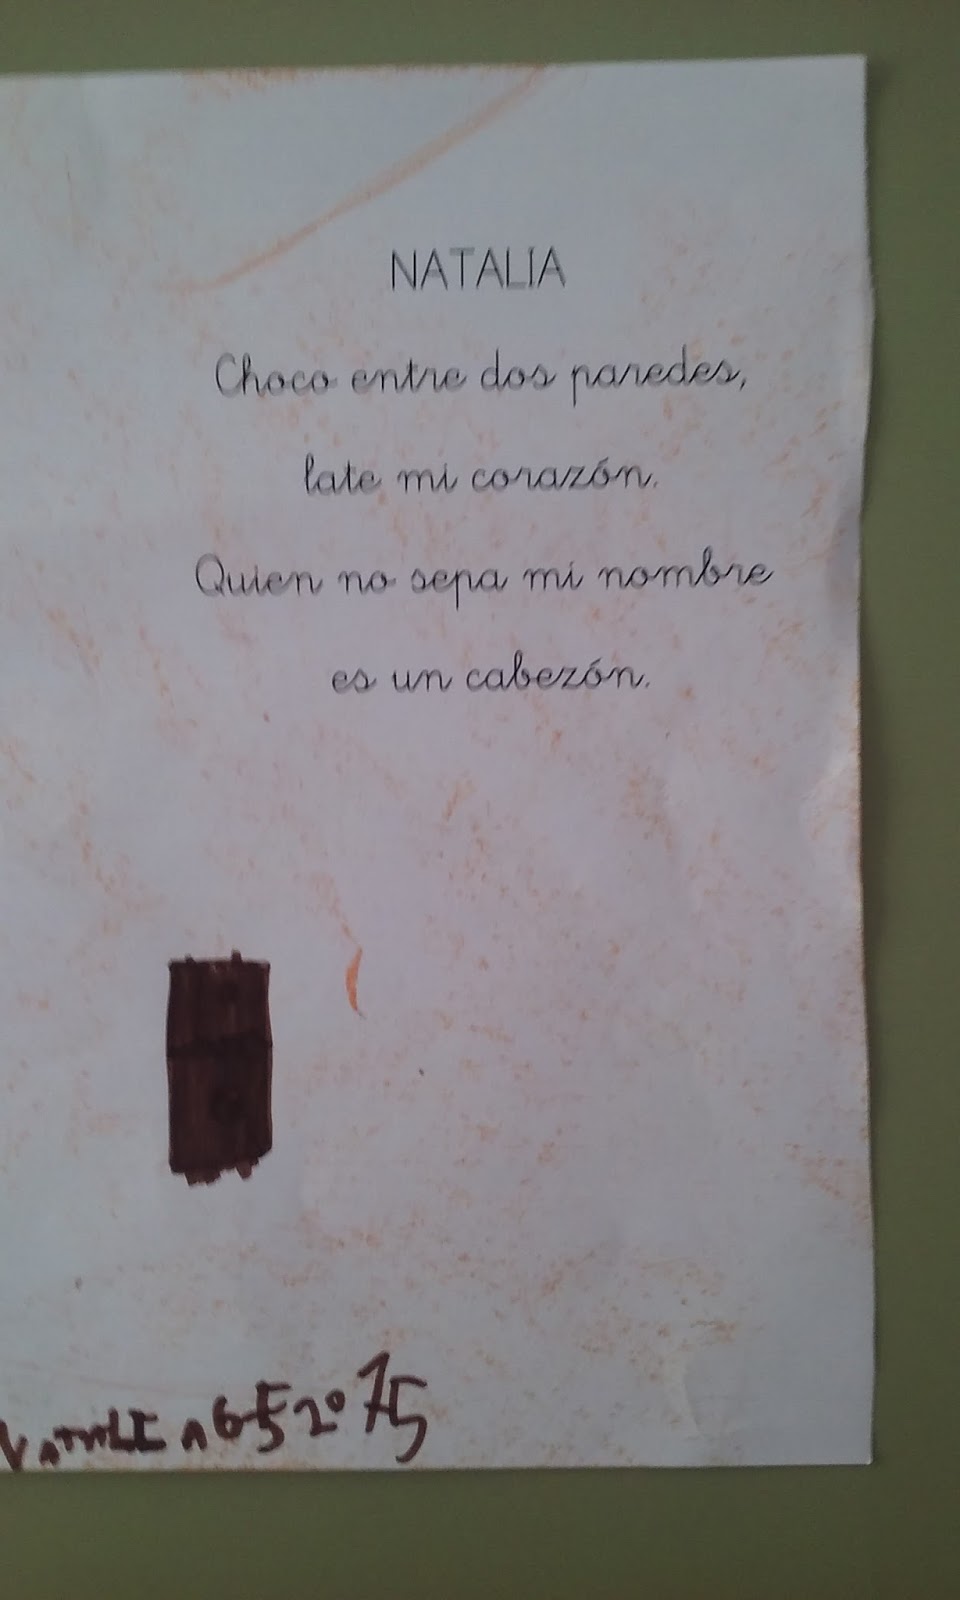 NATALIA
Choco entre dos paredes,
late mi corazón.
Quien no sepa mi nombre
es un cabezón.